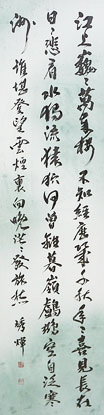 江上巍〻萬歲樓不知經歷幾千秋年〻喜見山長在
日〻悲看水獨流猿狖何曾離暮嶺鸕鶿空自泛寒
洲誰堪登望雲煙裏向晚茫〻發旅愁